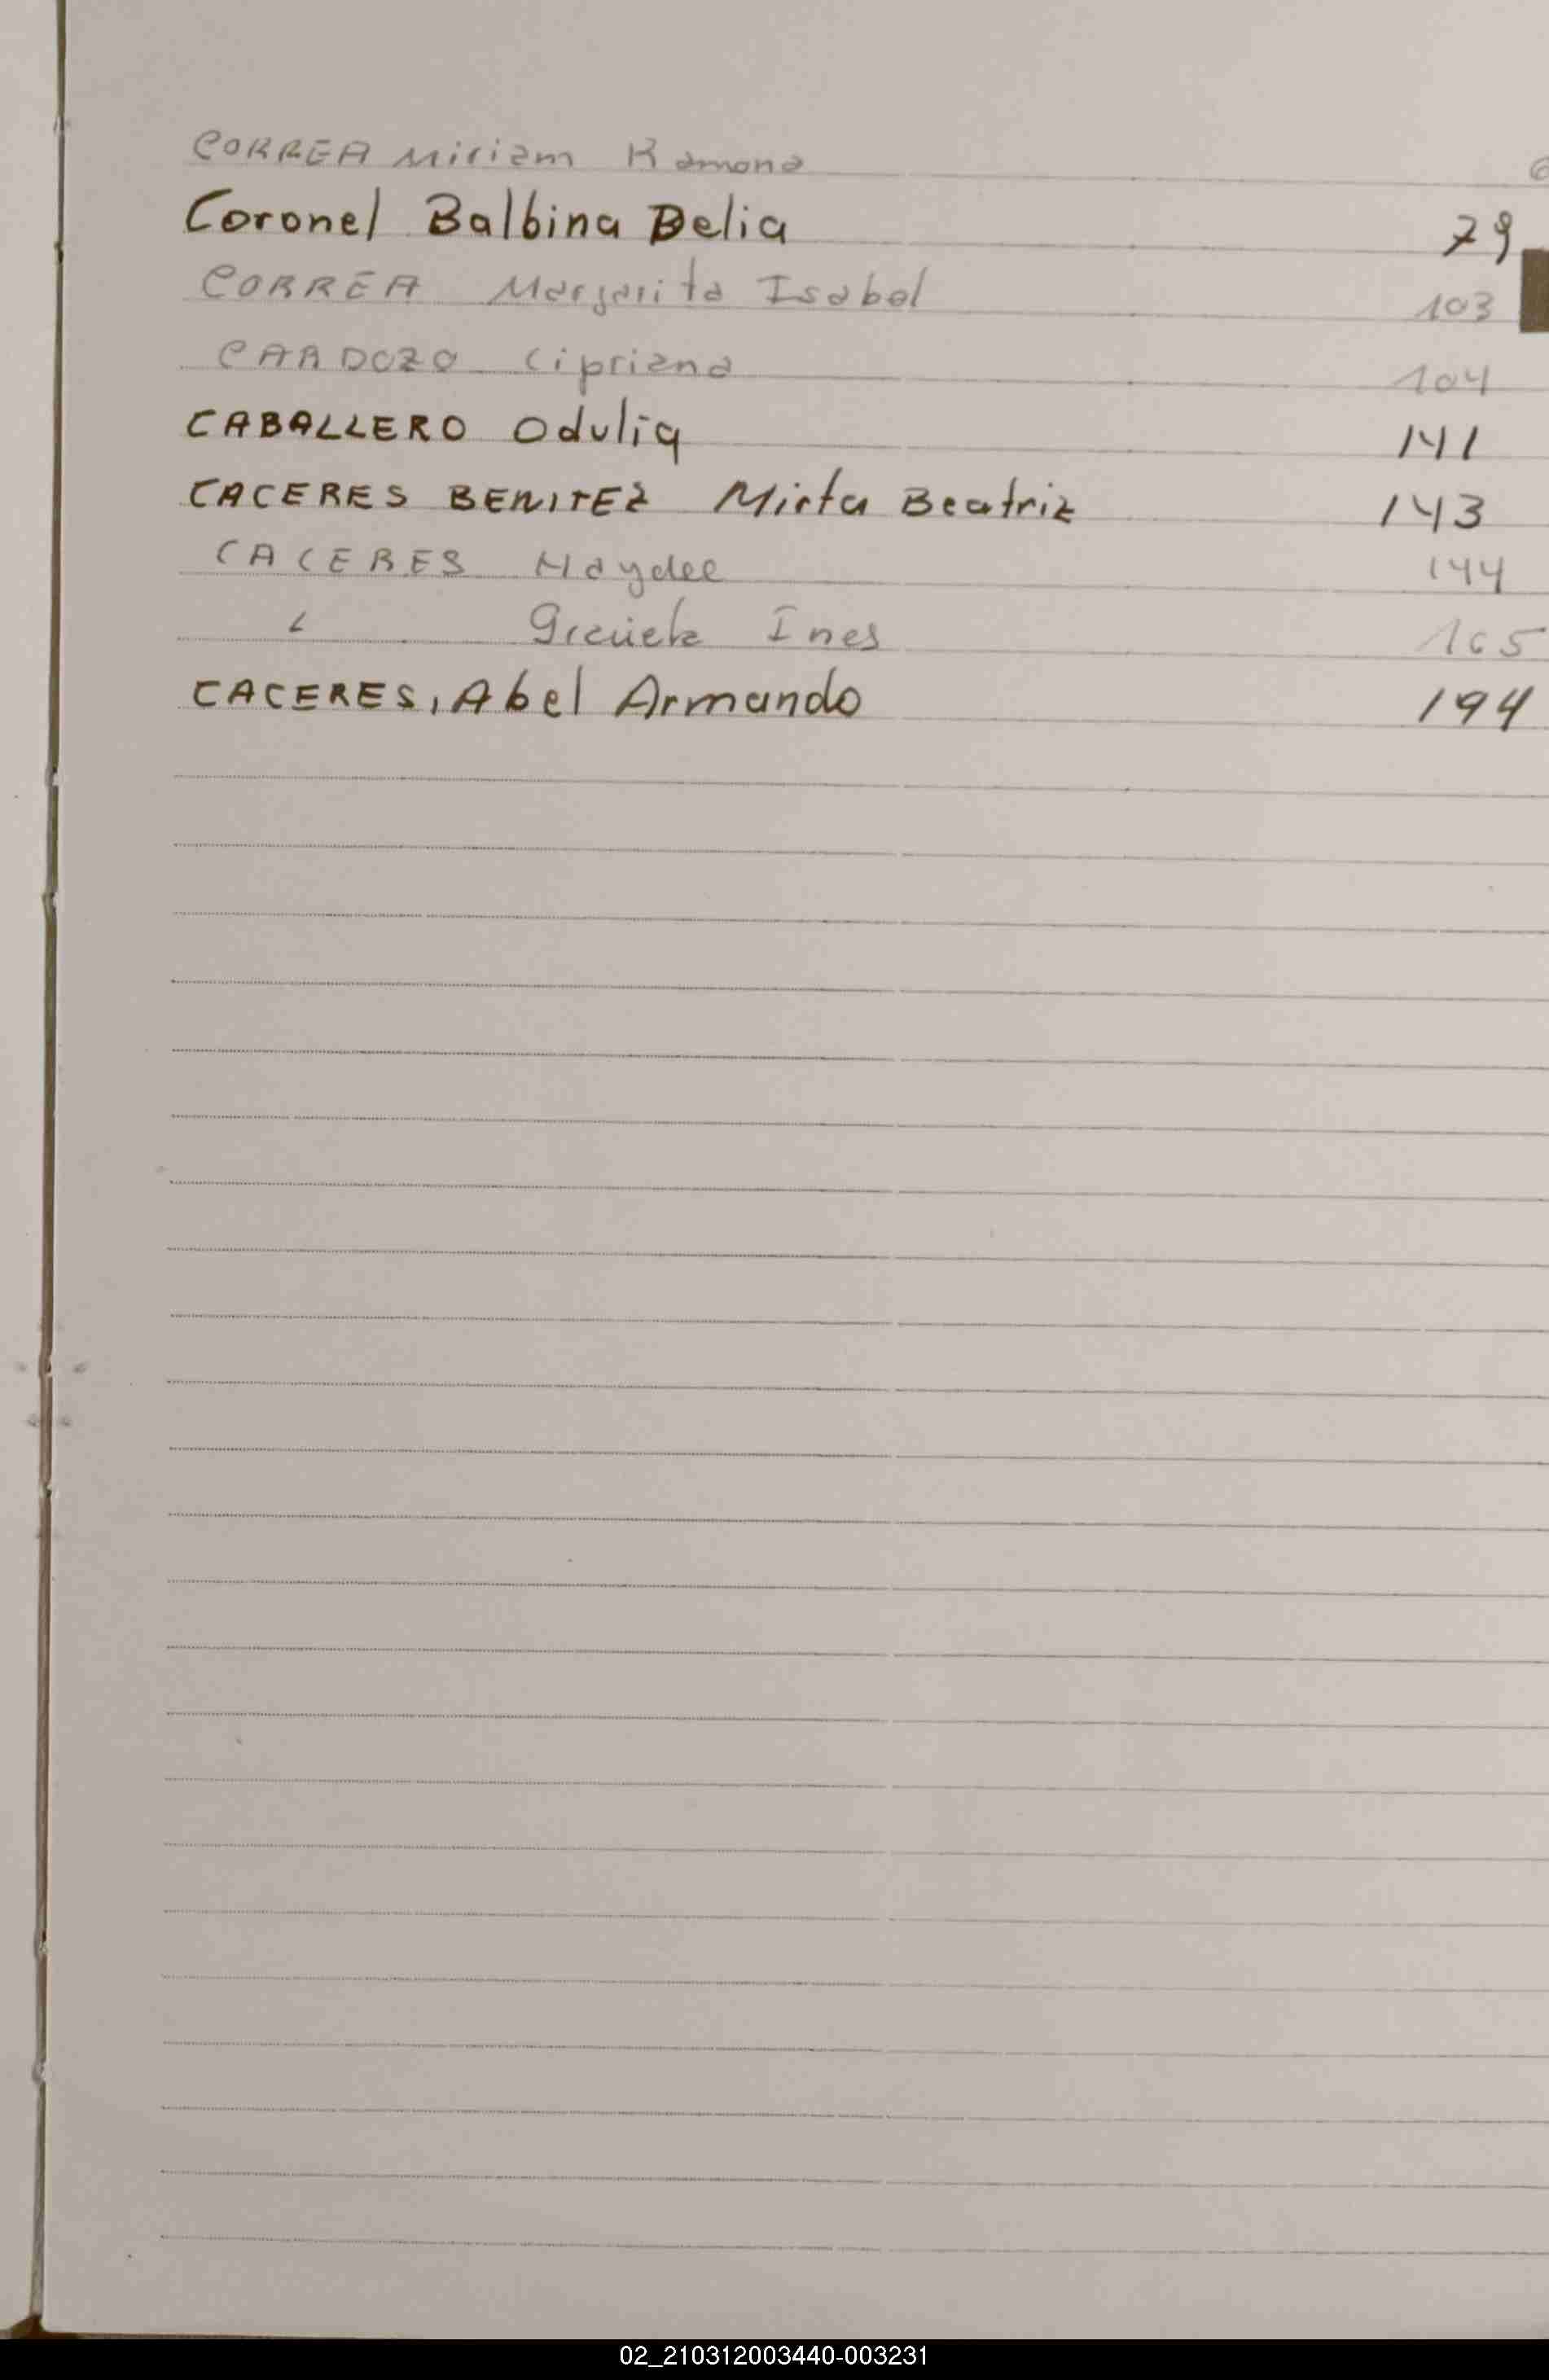 CORREA Miriam Ramona 6
Coronel Balbina Delia 79
CORREA Margarita Isabel 103
CARDOZO Cipriana 104
CABALLERO Odulia 141
CACERES BENITEZ Mirta Beatriz 143
CACERES Haydee 144
Graciela Ines 165
CACERES, Abel Armando 194
02_210312003440-003231